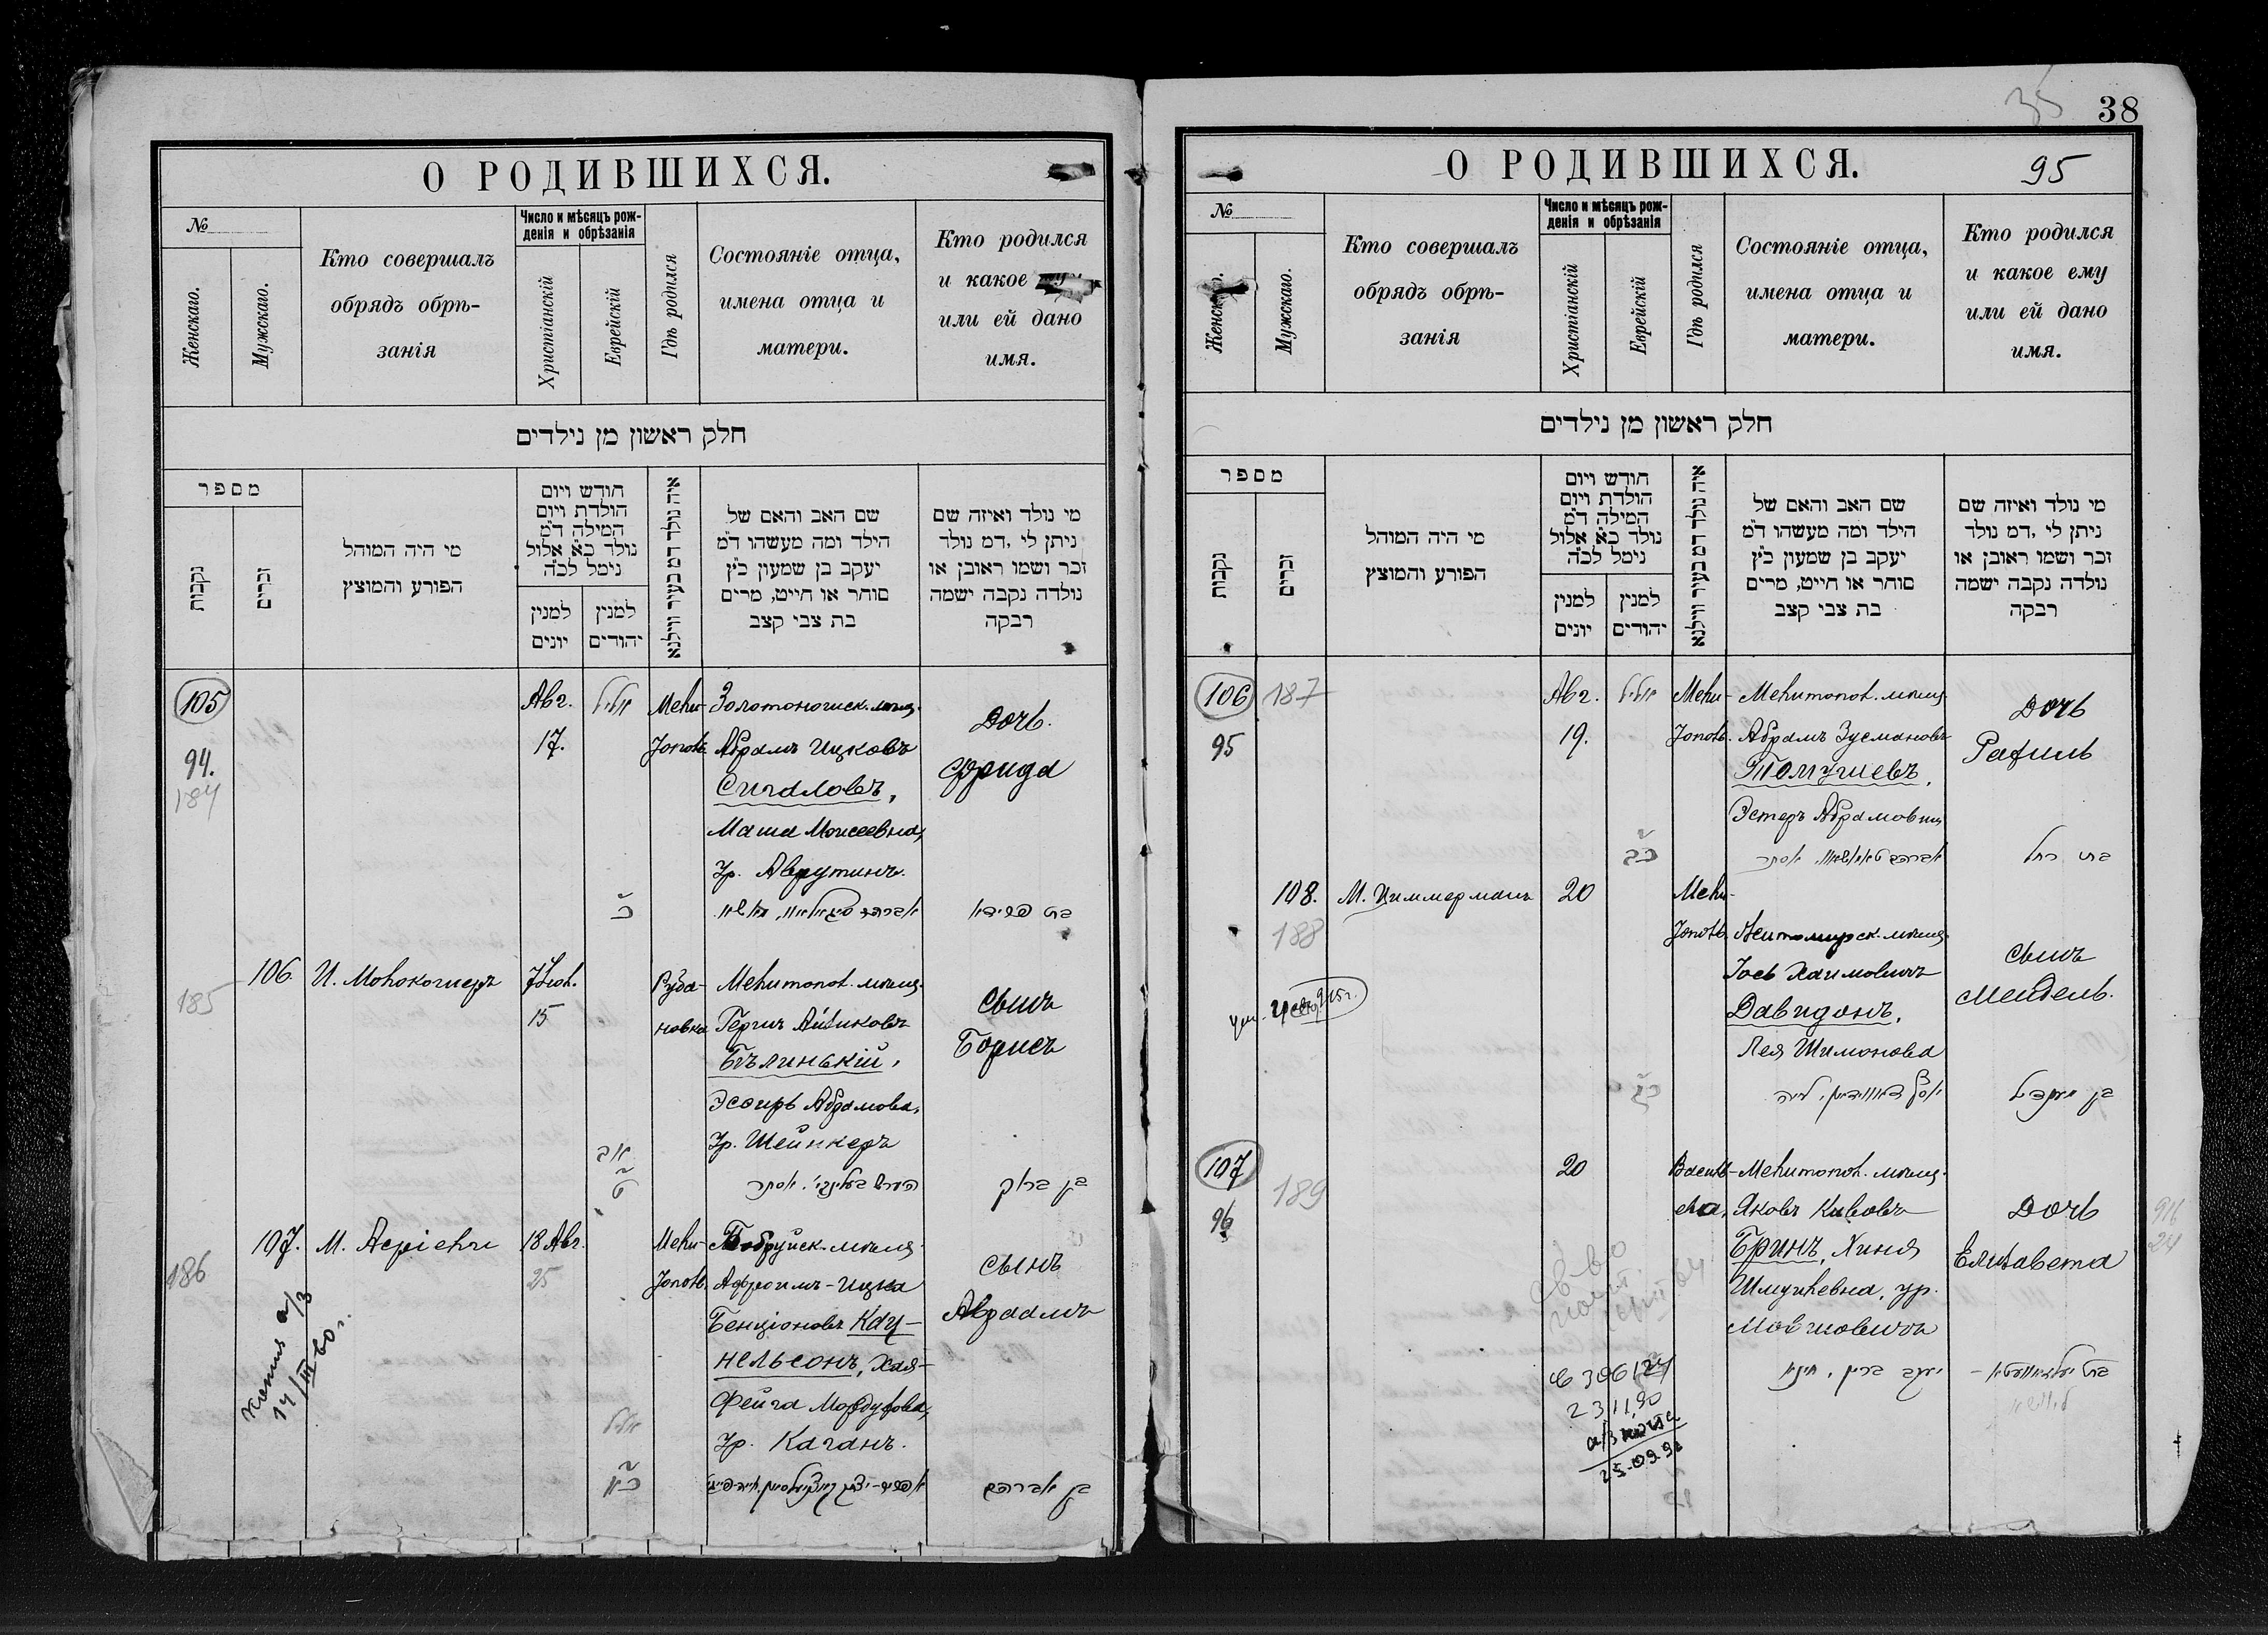 О РОДИВШИХСЯ.
№
Женскаго.
Мужскаго.
Кто совершалъ
обрядъ обрѣ-
занія
Число и мѣсяцъ рож-
денія и обрѣзанія
Христіанскій
Еврейскій
Гдѣ родился
Состояніе отца,
имена отца и
матери.
Кто родился
и какое
или ей дано
имя.
חלק ראשון מן נילדים
מספר
נקבות
זכרים
מי היה המוהל
הפורע והמוצץ
חודש ויום
הולדת ויום
המילה ד"מ
נולד כ"א אלול
נימל לכ"ה
למנין
יונים
למנין
יהודים
איה נולד דמ בעיר ווילנא
שם האב והאם של
הילד ומה מעשהו ד"מ
יעקב בן שמעון כ"ץ
סוחר או חייט, מרים
בת צבי קצב
מי נולד ואיזה שם
ניתן לי ,דמ נולד
זכר ושמו ראובן או
נולדה נקבה ישמה
רבקה
105
94.
184
Авг.
17.
אלול
Мели-
тополь
Золотоношск. мѣщ.
Абрамъ Ицковъ
Сигаловъ,
Маша Моисеевна,
Ур. Аврутинъ.
Дочь.
Фрида
בת פרידא
185
106
15
Руда-
новка
Мелитопол. мѣщ.
Бѣлинькій,
Эсѳирь Абрамова,
Ур. Шейнкеръ
Сынъ
Борисъ
אב
בן ברוך
186
107.
М.
18 Авг.
25
Мели-
тополь.
Бобруйск. мѣщ.
Афроимъ-Ицка
Бенціоновъ Кац-
нельсонъ, Хая-
Фейга Мордухова,
Ур. Каганъ.
Сынъ
Авраамъ
אלול
בן אברהם
Копия а/з
14/III 60 г.
35
38
О РОДИВШИХСЯ.
95
№
Мужскаго.
Кто совершалъ
обрядъ обрѣ-
занія
Число и мѣсяцъ рож-
денія и обрѣзанія
Христіанскій
Еврейскій
Гдѣ родился
Состояніе отца,
имена отца и
матери.
Кто родился
и какое ему
или ей дано
имя.
חלק ראשון מן נילדים
מספר
נקבות
זכרים
מי היה המוהל
הפורע והמוצץ
חודש ויום
הולדת ויום
המילה ד"מ
נולד כ"א אלול
נימל לכ"ה
למנין
יונים
למנין
יהודים
איה נולד דמ בעיר ווילנא
שם האב והאם של
הילד ומה מעשהו ד"מ
יעקב בן שמעון כ"ץ
סוחר או חייט, מרים
בת צבי קצב
מי נולד ואיזה שם
ניתן לי ,דמ נולד
זכר ושמו ראובן או
נולדה נקבה ישמה
רבקה
106
187
95
Авг.
19.
אלול
Мели-
тополь.
Мелитопол. мѣщ.
Абрамъ Зусмановъ
Эстеръ Абрамовна
Дочь
Рахиль
כב
בת רחל
108.
188
М. Циммерманъ
20
Мели-
тополь
Житомирск. мѣщ.
Іось Хаимовичъ
Давидонъ,
Лея Шимонова
Сынъ
Мендель.
כג
בן מענדל
107
189
96
20
Василь-
евка,
Мелитопол. мѣщ.
Яковъ Кивовъ
Бринъ, Хиня
Шмулевна, ур.
Мовшовичъ
Дочь
Елизавета
יעקב ברין, חיניא
306124
2311,90
25.09.92